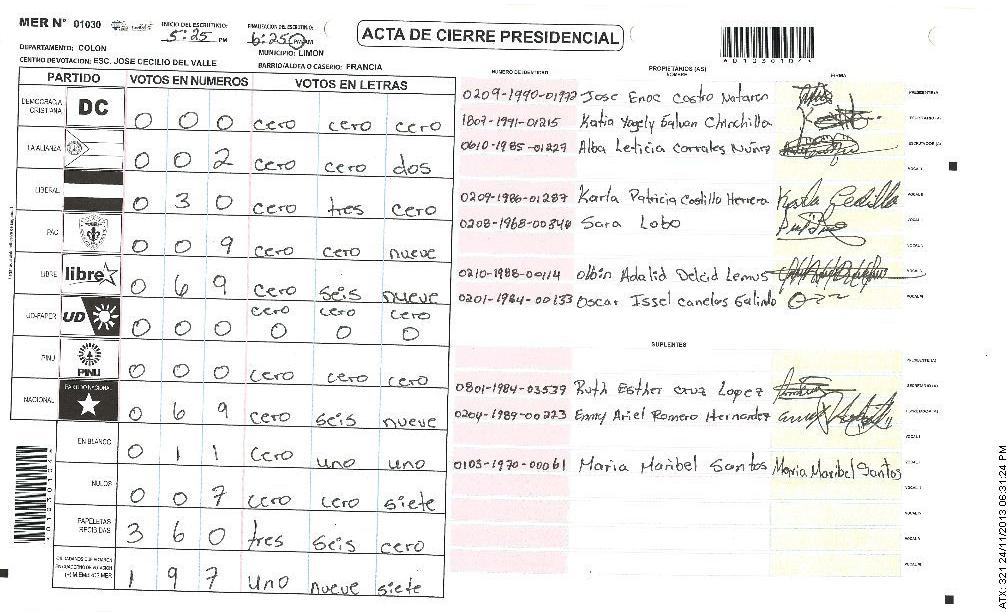 MER N° 01030
INICIO DEL ESCRUTINIO: 5:25 PM
FINALIZACION DEL ESCRUTINIO: 6:25
ACTA DE CIERRE PRESIDENCIAL
DEPARTAMENTO: COLON
MUNICIPIO: LIMON
CENTRO DE VOTACION: ESC. JOSE CECILIO DEL VALLE
BARRIO/ALDEA O CASERIO: FRANCIA
PARTIDO VOTOS EN NUMEROS VOTOS EN LETRAS
DEMOCRACIA CRISTIANA DC 0 0 0 cero cero cero
LA ALIANZA 0 0 2 cero cero dos
LIBERAL 0 3 0 cero tres cero
PAC 0 0 9 cero cero nueve
LIBRE libre 0 6 9 cero seis nueve
UD-FAPER UD 0 0 0 cero cero cero
0 0 0
PINU PINU 0 0 0 cero cero cero
NACIONAL PARTIDO NACIONAL 0 6 9 cero seis nueve
EN BLANCO 0 1 1 cero uno uno
NULOS 0 0 7 cero cero siete
PAPELETAS RECIBIDAS 3 6 0 tres seis cero
1 9 7 uno nueve siete
NUMERO DE IDENTIDAD PROPIETARIOS (AS) NOMBRE FIRMA
0209-1990-01972 Jose Enoc Castro Nataren
1807-1991-01215 Katia Yogely Galvan Chinchilla
0610-1985-01227 Alba Leticia Corrales Nuñez
0209-1986-01287 Karla Patricia Castillo Herrera
0208-1968-00340 Sara Lobo
0210-1988-00114 Olbin Adalid Delcid Lemus
0201-1984-00133 Oscar Issel Canelas Galindo
SUPLENTES
0801-1984-03539 Ruth Esther Cruz Lopez
0204-1989-00223 Enny Ariel Romero Hernandez
0103-1970-00061 Maria Maribel Santos Maria Maribel Santos
ATX: 321 24/11/2013 06:31:24 PM